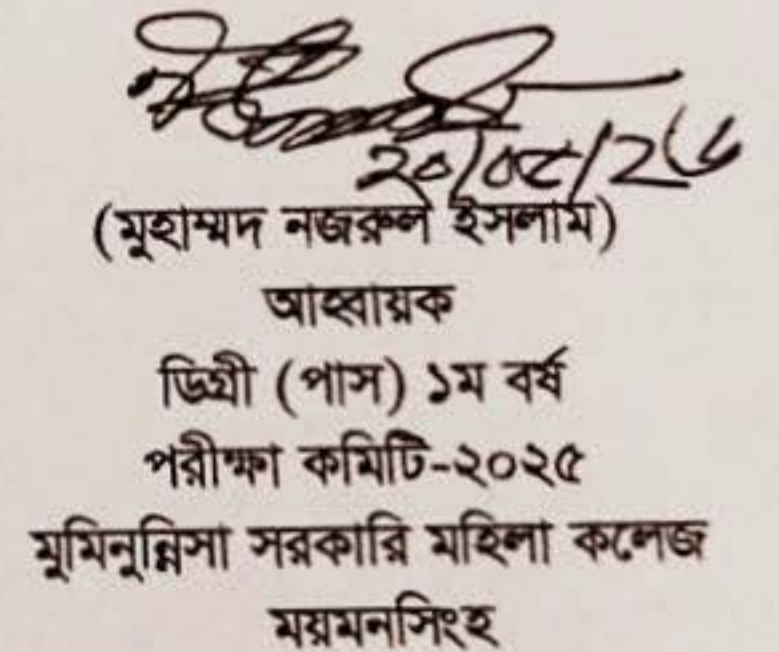 ২০/০৫/২৬
(মুহাম্মদ নজরুল ইসলাম)
আহবায়ক
ডিগ্রী (পাস) ১ম বর্ষ
পরীক্ষা কমিটি-২০২৫
মুমিনুন্নিসা সরকারি মহিলা কলেজ
ময়মনসিংহ